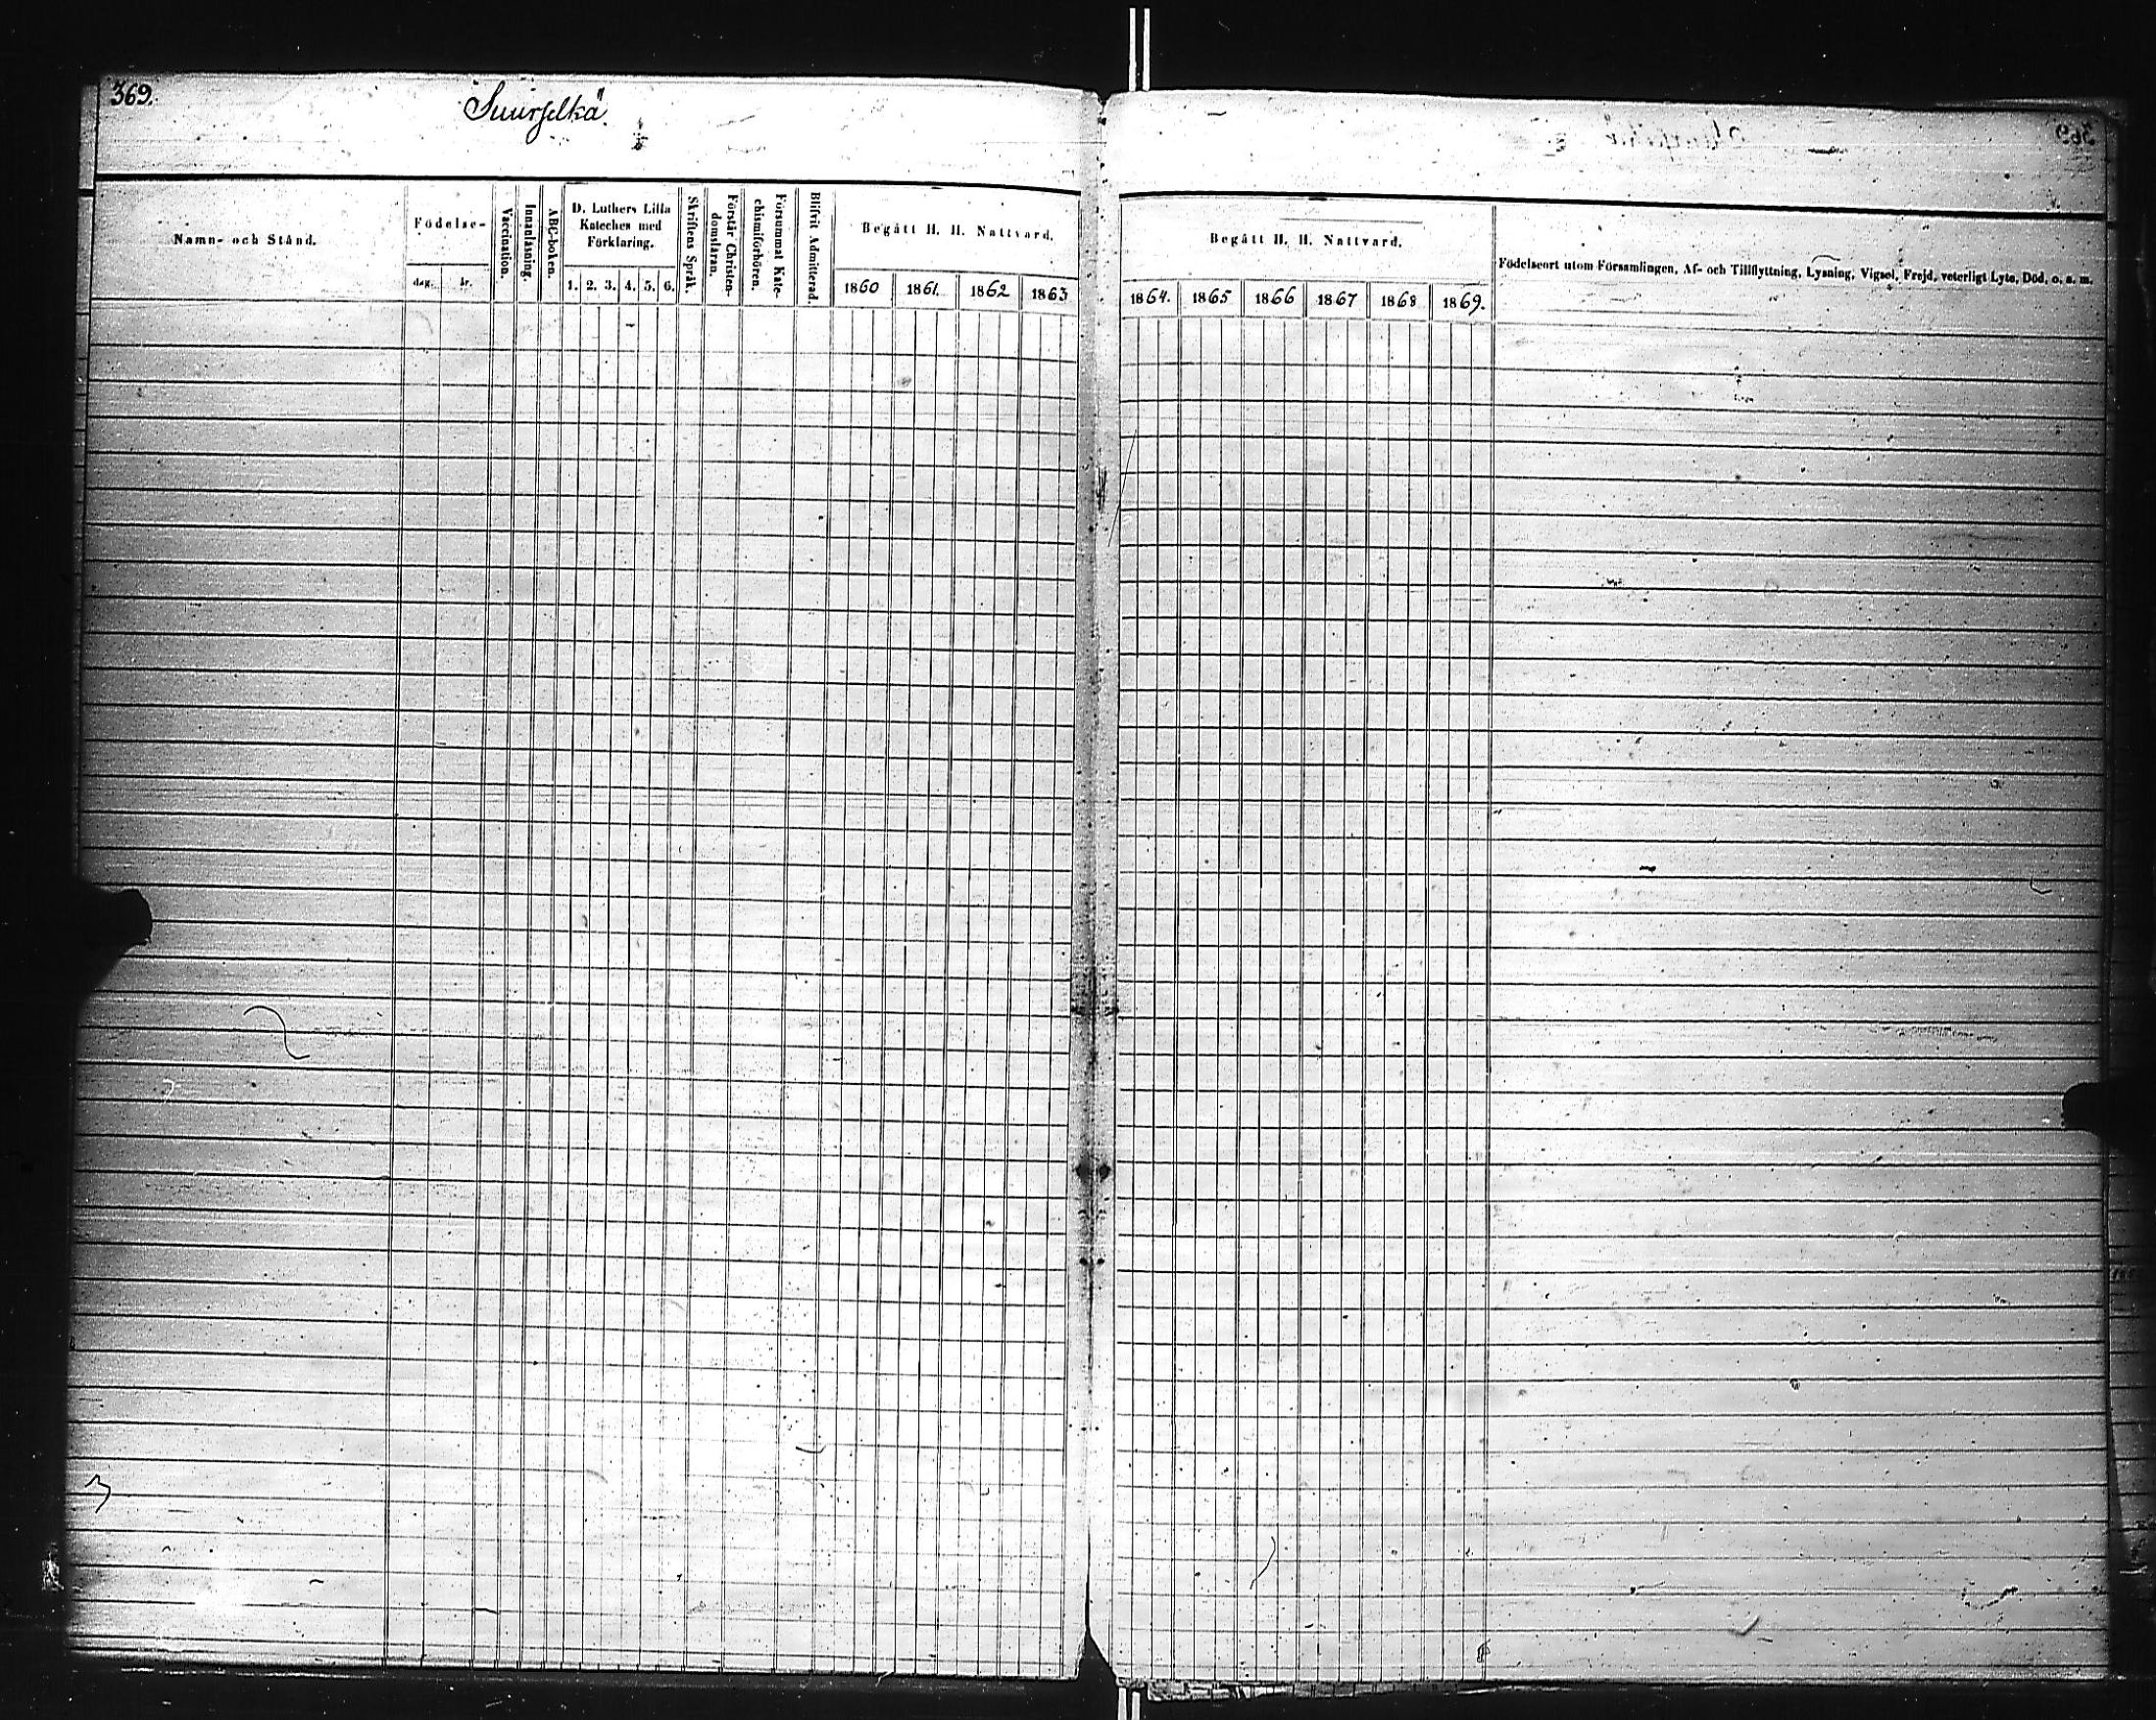 369.
Suurselkä.
Namn- och Stånd.
Födelse-
dag.
år.
Vaccination.
Innanläsning.
ABC-boken.
D. Luthers Lilla
Kateches med
Förklaring.
1. 2. 3. 4. 5. 6.
Skriftens Språk.
Förstår Christen-
domsläran.
Försummat Kate-
chismiförhören.
Blifvit Admitterad.
Begått H. H. Nattvard.
1860 1861. 1862 1863
Begått H. H. Nattvard.
1864. 1865 1866 1867 1868 1869.
Födelseort utom Församlingen, Af- och Tillflyttning, Lysning, Vigsel, Frejd, veterligt Lyte, Död, o. s. m.